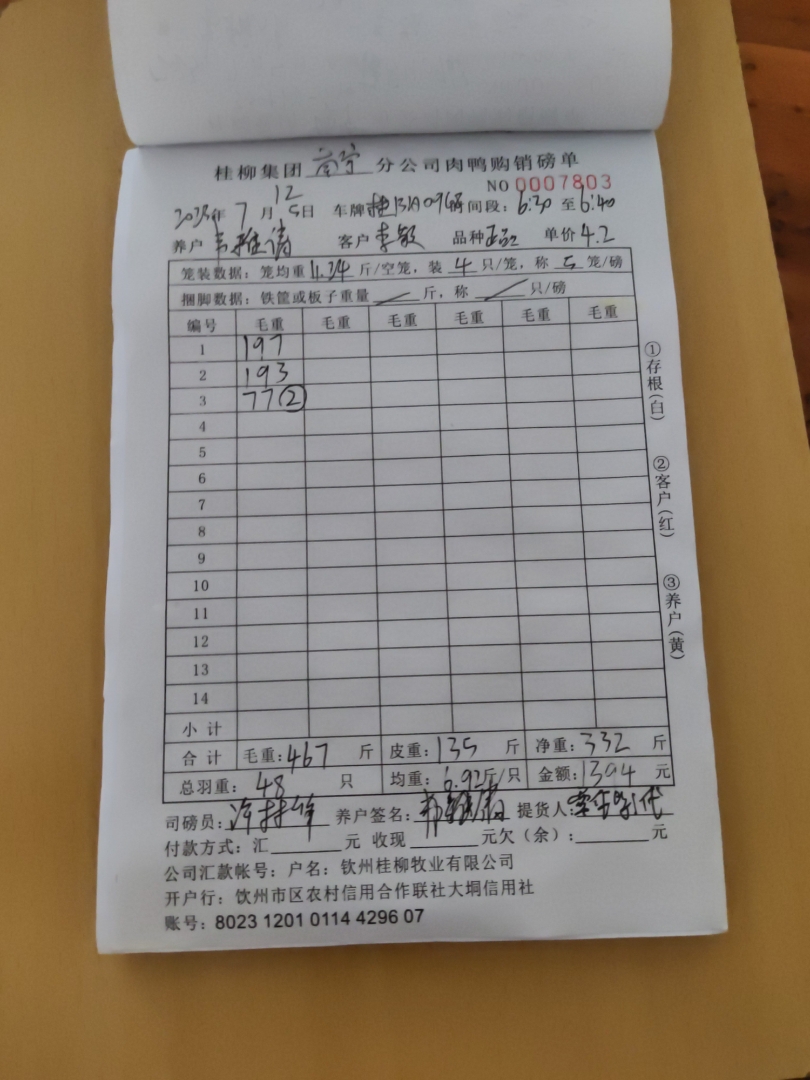 桂柳集团 南宁 分公司肉鸭购销磅单
NO 0007803
2023年 7 月 12 5日 车牌 桂BA0968 时间段: 6:30 至 6:40
养户 韦雅诗 客户 李敏 品种 单价 4.2
笼装数据: 笼均重 11.34 斤/空笼, 装 4 只/笼, 称 5 笼/磅
捆脚数据: 铁筐或板子重量 / 斤, 称 / 只/磅
编号 毛重 毛重 毛重 毛重 毛重 毛重
1 197
2 193
3 77②
4
5
6
7
8
9
10
11
12
13
14
小计
合计 毛重: 467 斤 皮重: 135 斤 净重: 332 斤
总羽重: 48 只 均重: 6.92斤/只 金额: 1394 元
司磅员: 养户签名: 提货人:
付款方式: 汇 元 收现 元欠(余): 元
公司汇款帐号: 户名: 钦州桂柳牧业有限公司
开户行: 钦州市区农村信用合作联社大垌信用社
账号: 8023 1201 0114 4296 07
①存根(白)
②客户(红)
③养户(黄)